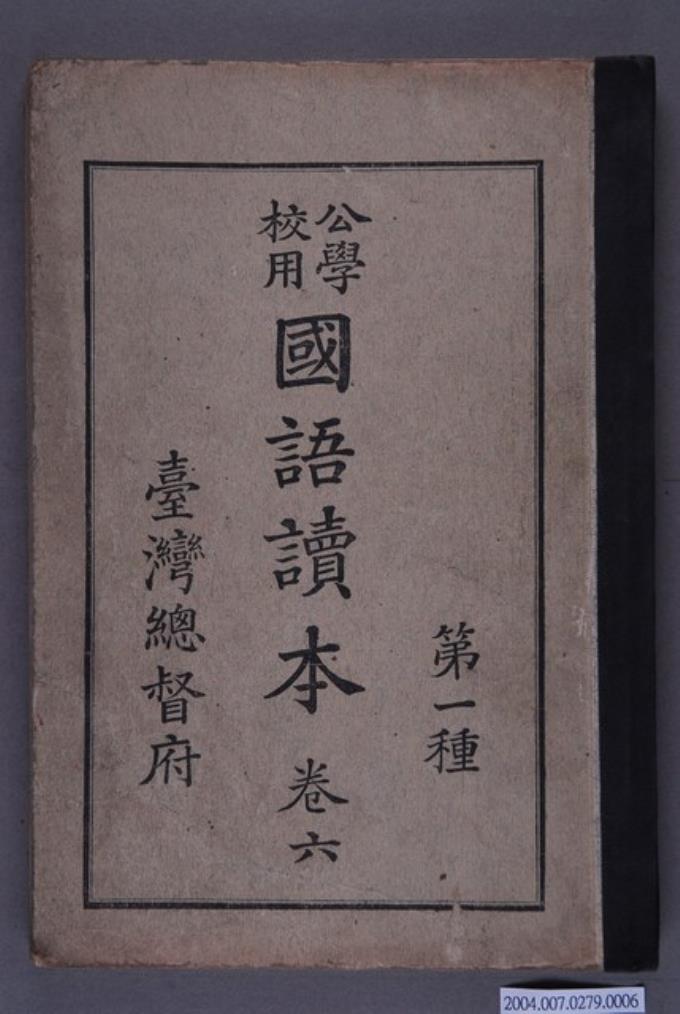 第一種
公學校用
國語讀本 卷六
臺灣總督府
2004.007.0279.0006